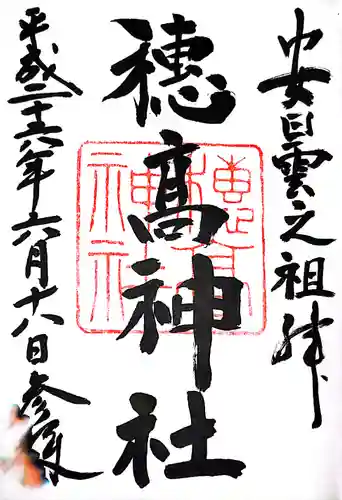 安曇之祖神
穂高神社
平成二十六年六月十八日参拝
穂高神社